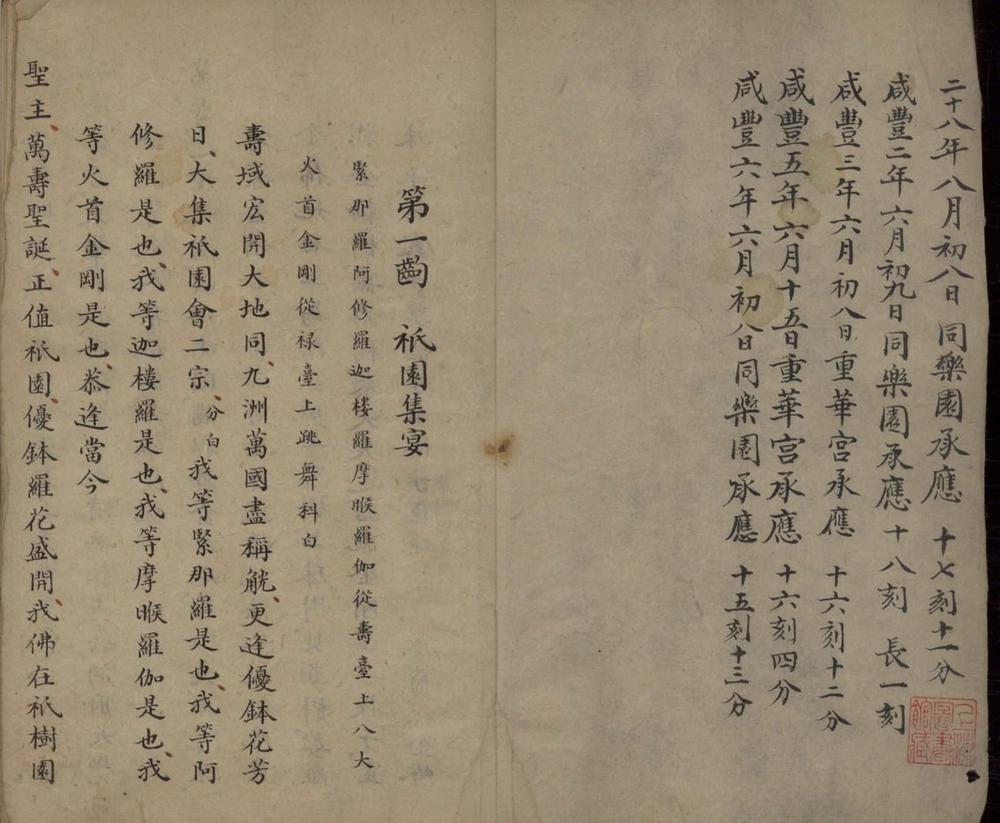 二十八年八月初八日同樂園承應 十七刻十一分
咸豐二年六月初九日同樂園承應 十八刻 長一刻
咸豐三年六月初八日重華宮承應 十六刻十二分
咸豐五年六月十五日重華宮承應 十六刻四分
咸豐六年六月初八日同樂園承應 十五刻十三分
第一齣 祇園集宴
緊那羅阿修羅迦楼羅摩睺羅伽從壽臺上八大
火首金剛從禄臺上跳舞科白
壽域宏開大地同、九洲萬國盡稱觥、更逢優鉢花芳
日、大集祇園會二宗、分白我等緊那羅是也、我等阿
修羅是也、我等迦樓羅是也、我等摩睺羅伽是也、我
等火首金剛是也、恭逢當今
聖主、萬壽聖誕、正值祇園、優鉢羅花盛開、我佛在祇樹園